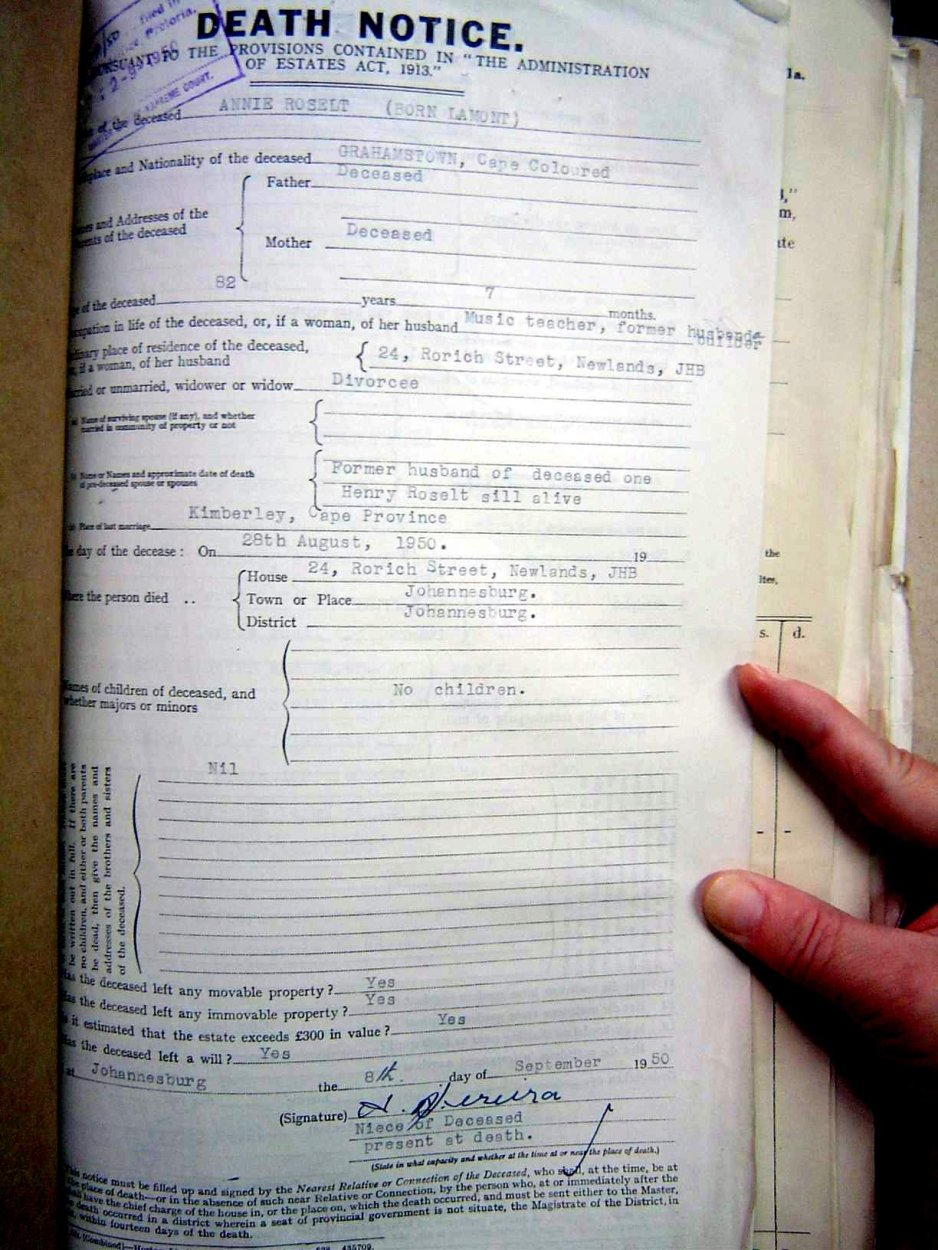 DEATH NOTICE.
TO THE PROVISIONS CONTAINED IN "THE ADMINISTRATION
OF ESTATES ACT, 1913."
of the deceased ANNIE ROSELT (BORN LAMONT)
place and Nationality of the deceased GRAHAMSTOWN, Cape Coloured
Father Deceased
and Addresses of the
of the deceased
Mother Deceased
of the deceased 82 years 7 months.
in life of the deceased, or, if a woman, of her husband Music teacher, former
place of residence of the deceased,
if a woman, of her husband
24, Rorich Street, Newlands, JHB
or unmarried, widower or widow Divorcee
Name of surviving spouse (if any), and whether
married in community of property or not
Name or Names and approximate date of death
of pre-deceased spouse or spouses
Former husband of deceased one
Henry Roselt sill alive
Place of last marriage Kimberley, Cape Province
day of the decease: On 28th August, 1950. 19
the person died ..
House 24, Rorich Street, Newlands, JHB
Town or Place Johannesburg.
District Johannesburg.
of children of deceased, and
whether majors or minors
No children.
be written out in full. If there are
no children, and either or both parents
be dead, then give the names and
addresses of the brothers and sisters
of the deceased.
Nil
the deceased left any movable property? Yes
the deceased left any immovable property? Yes
it estimated that the estate exceeds £300 in value? Yes
the deceased left a will? Yes
at Johannesburg the 8th day of September 1950
(Signature)
Niece of Deceased
present at death.
(State in what capacity and whether at the time at or near the place of death.)
notice must be filled up and signed by the Nearest Relative or Connection of the Deceased, who shall, at the time, be at
place of death—or in the absence of such near Relative or Connection, by the person who, at or immediately after the
have the chief charge of the house in, or the place on, which the death occurred, and must be sent either to the Master,
death occurred in a district wherein a seat of provincial government is not situate, the Magistrate of the District, in
within fourteen days of the death.
435709.
la.
m,
the
s. d.